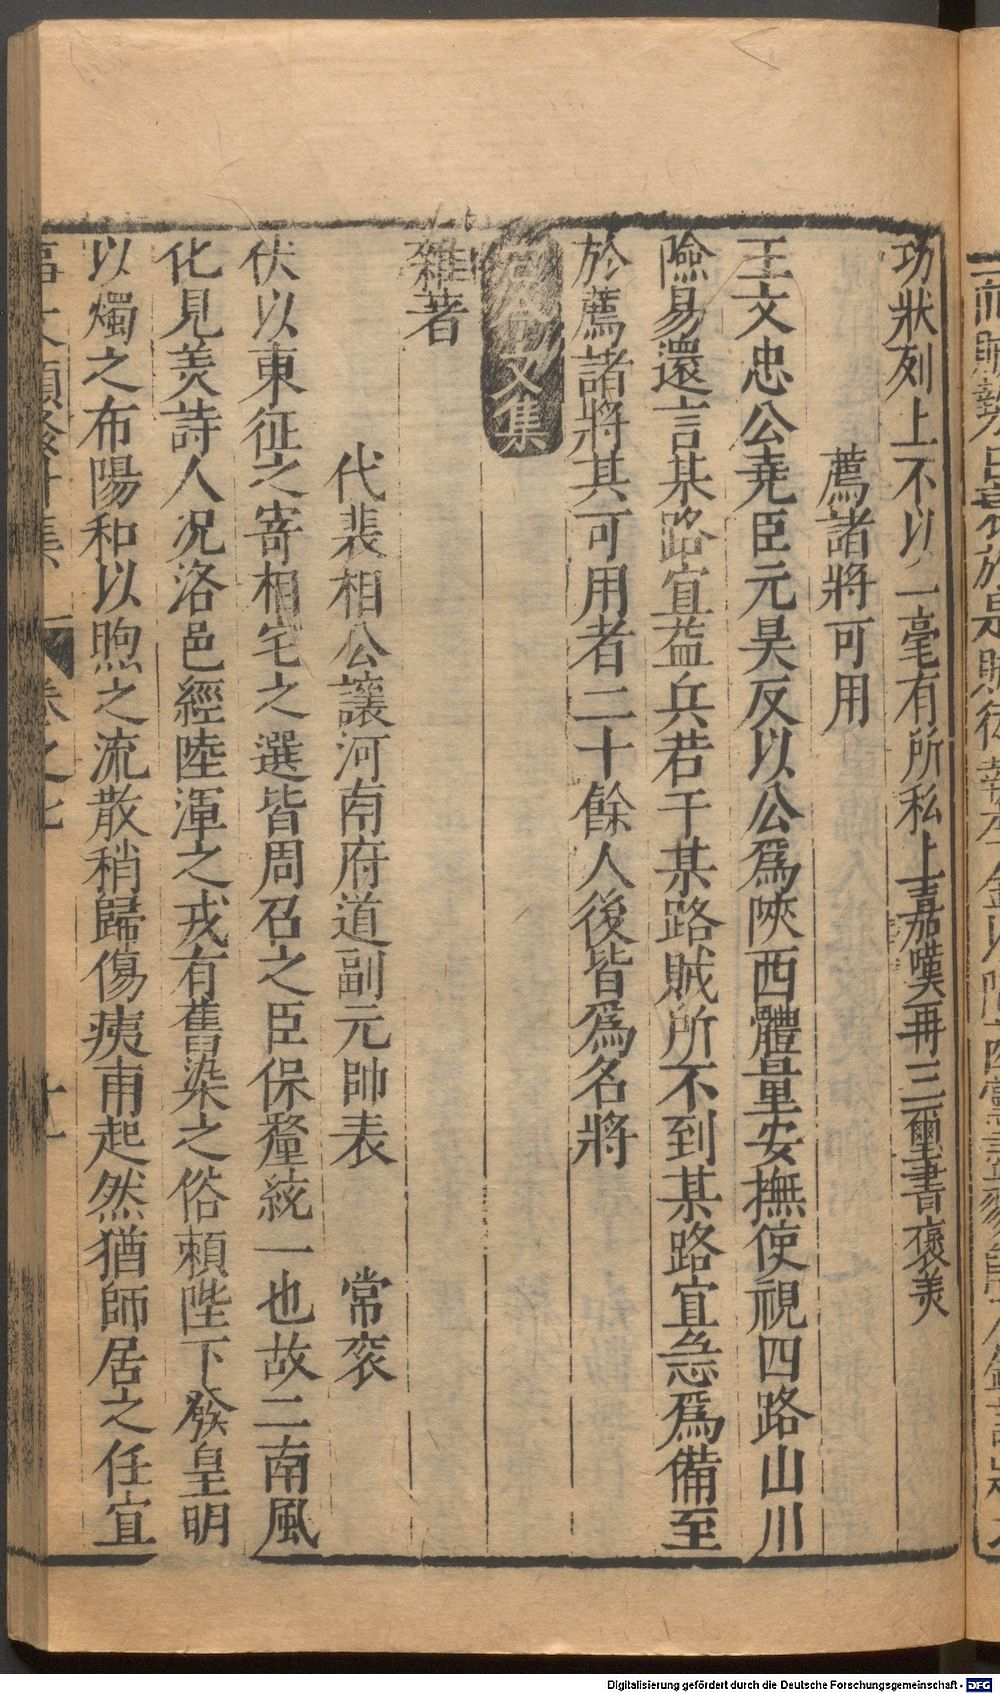 功狀列上不以一毫有所私上嘉嘆再三璽書褒美
薦諸將可用
王文忠公堯臣元昊反以公爲陜西體量安撫使視四路山川
險易還言某路宜益兵若干某路賊所不到某路宜急爲備至
於薦諸將其可用者二十餘人後皆爲名將
文集
雜著
代裴相公讓河南府道副元帥表 常袞
伏以東征之寄相宅之選皆周召之臣保釐統一也故二南風
化見美詩人况洛邑經陸渾之戎有舊染之俗頼陛下發皇明
以燭之布陽和以煦之流散稍歸傷痍甫起然猶師居之任宜
卷之七 十一
Digitalisierung gefördert durch die Deutsche Forschungsgemeinschaft - DFG